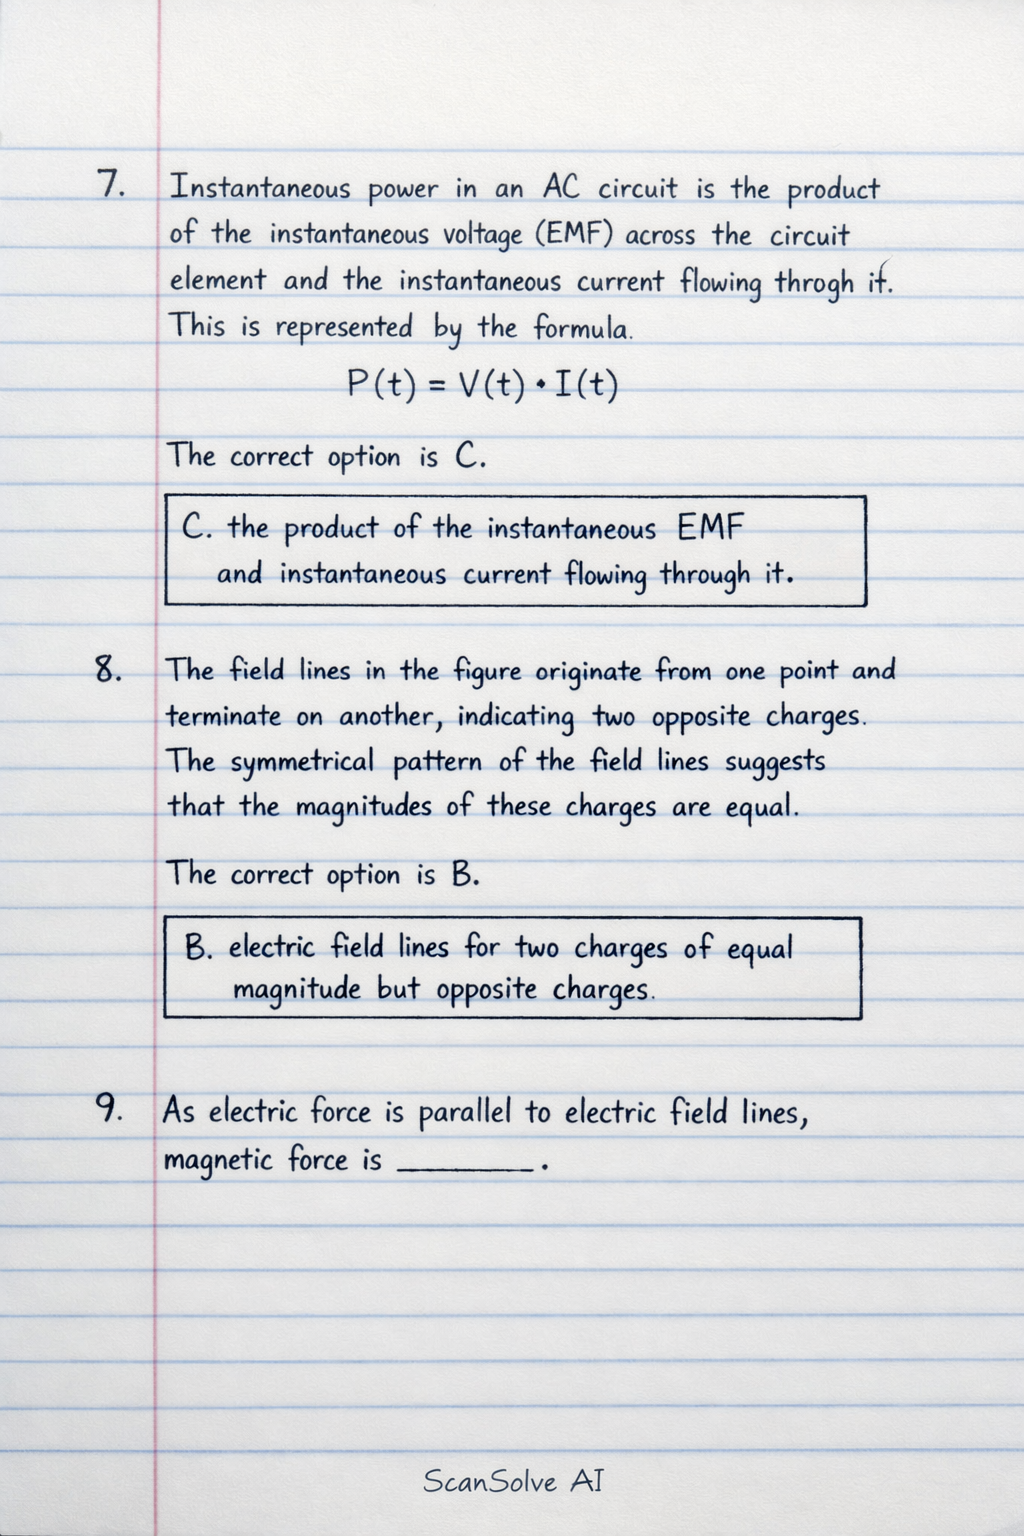 7. Instantaneous power in an AC circuit is the product
of the instantaneous voltage (EMF) across the circuit
element and the instantaneous current flowing throgh it.
This is represented by the formula.
P(t) = V(t) • I(t)
The correct option is C.
C. the product of the instantaneous EMF
and instantaneous current flowing through it.
8. The field lines in the figure originate from one point and
terminate on another, indicating two opposite charges.
The symmetrical pattern of the field lines suggests
that the magnitudes of these charges are equal.
The correct option is B.
B. electric field lines for two charges of equal
magnitude but opposite charges.
9. As electric force is parallel to electric field lines,
magnetic force is ________.
ScanSolve AI